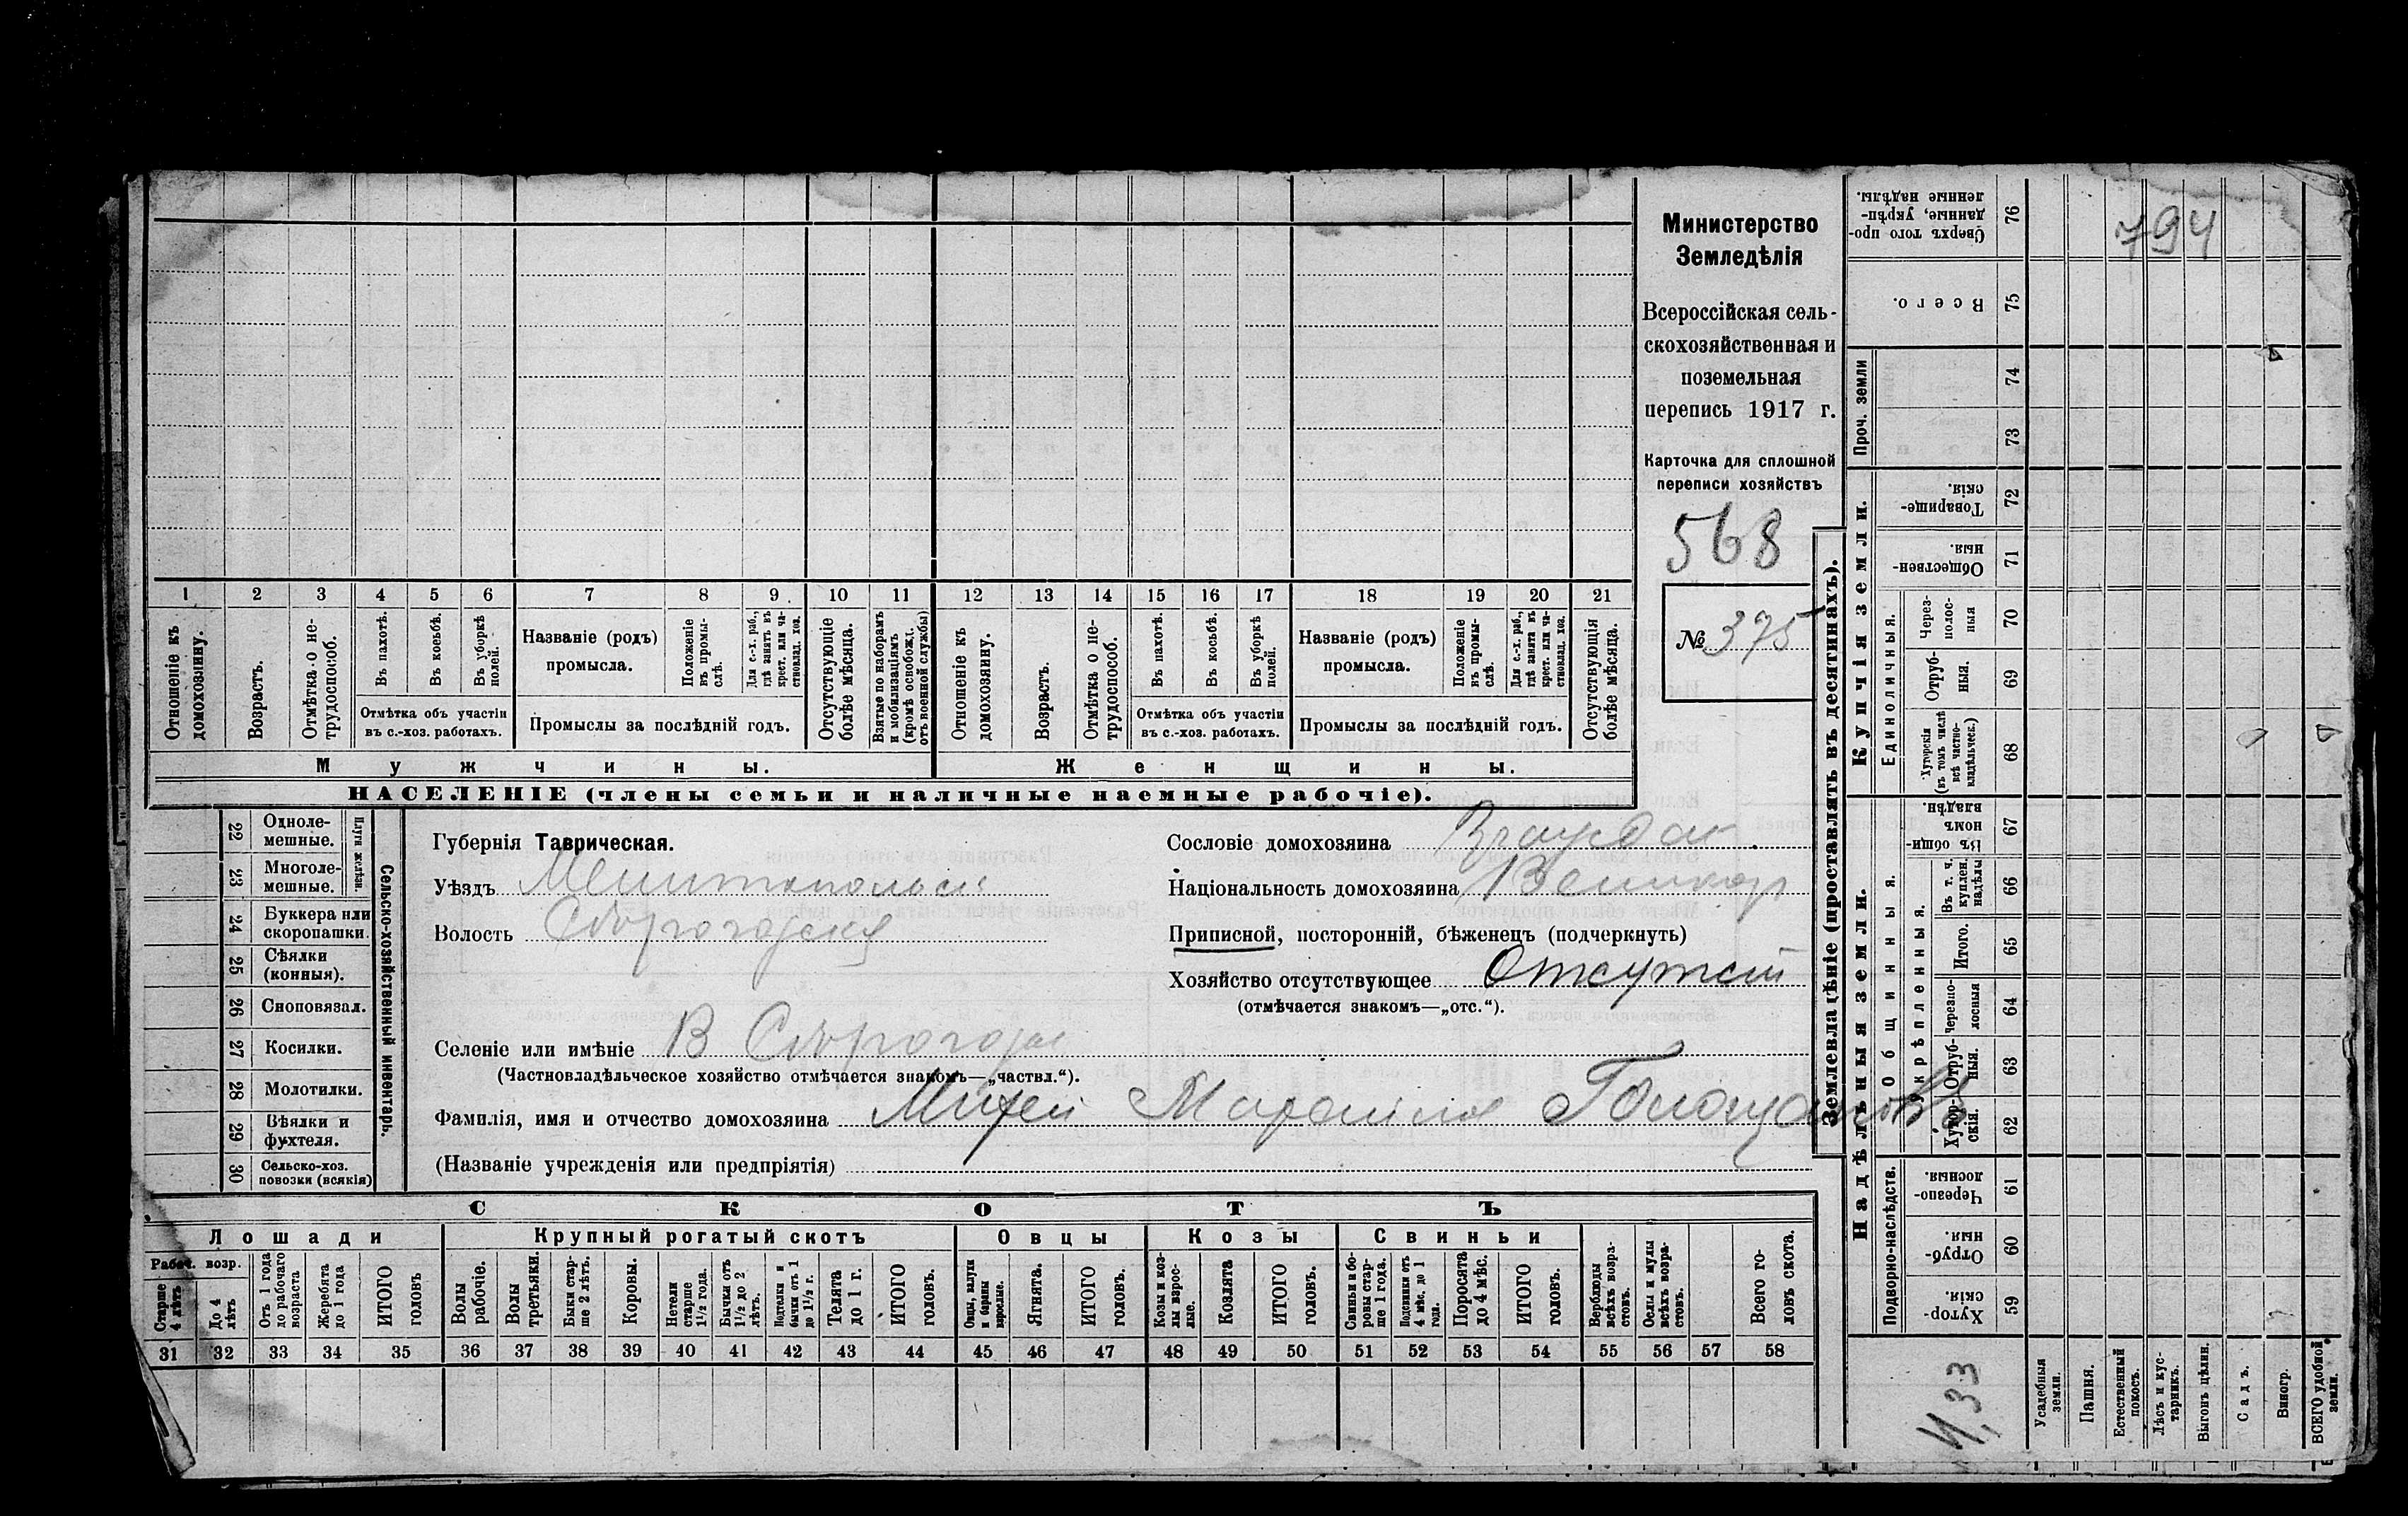 Министерство
Земледѣлія
Всероссійская сель-
скохозяйственная и
поземельная
перепись 1917 г.
Карточка для сплошной
переписи хозяйствъ
568
№ 375
794
1 2 3 4 5 6 7 8 9 10 11 12 13 14 15 16 17 18 19 20 21
Отношеніе къ домохозяину.
Возрастъ.
Отмѣтка о не-трудоспособ.
Въ пахотѣ.
Въ косьбѣ.
Въ уборкѣ полей.
Отмѣтка объ участіи
въ с.-хоз. работахъ.
Названіе (родъ)
промысла.
Положеніе въ промы-слѣ.
Для с.-х. раб., гдѣ занятъ въ крест. или ча-стновлад. хоз.
Промыслы за послѣдній годъ.
Отсутствующіе болѣе мѣсяца.
Взятые по наборамъ и мобилизаціямъ (кромѣ освобожд. отъ военной службы)
Отношеніе къ домохозяину.
Возрастъ.
Отмѣтка о не-трудоспособ.
Въ пахотѣ.
Въ косьбѣ.
Въ уборкѣ полей.
Отмѣтка объ участіи
въ с.-хоз. работахъ.
Названіе (родъ)
промысла.
Положеніе въ промы-слѣ.
Для с.-х. раб., гдѣ занята въ крест. или ча-стновлад. хоз.
Промыслы за послѣдній годъ.
Отсутствующія болѣе мѣсяца.
Мужчины.
Женщины.
НАСЕЛЕНІЕ (члены семьи и наличные наемные рабочіе).
22 Одноле-мешные.
23 Многоле-мешные.
Плуги желѣзн.
24 Буккера или скоропашки.
25 Сѣялки (конныя).
26 Сноповязал.
27 Косилки.
28 Молотилки.
29 Вѣялки и фухтеля.
30 Сельско-хоз. повозки (всякія)
Сельско-хозяйственный инвентарь.
Губернія Таврическая.
Уѣздъ Мелитопольск
Волость
Сословіе домохозяина
Національность домохозяина Великор
Приписной, посторонній, бѣженецъ (подчеркнуть)
Хозяйство отсутствующее Отсутст
(отмѣчается знакомъ—„отс.“).
Селеніе или имѣніе В
(Частновладѣльческое хозяйство отмѣчается знакомъ—„частвл.“).
Фамилія, имя и отчество домохозяина
(Названіе учрежденія или предпріятія)
СКОТЪ
Лошади
Крупный рогатый скотъ
Овцы
Козы
Свиньи
Рабоч. возр.
Старше 4 лѣтъ
До 4 лѣтъ
Отъ 1 года до рабочаго возраста
Жеребята до 1 года
ИТОГО головъ
Волы рабочіе.
Волы третьяки.
Быки стар-ше 2 лѣтъ.
Коровы.
Нетели старше 1½ года.
Бычки отъ 1½ до 2 лѣтъ.
Подтелки и бычки отъ 1 до 1½ г.
Телята до 1 г.
ИТОГО головъ.
Овцы, валухи и бараны взрослые.
Ягнята.
ИТОГО головъ.
Козы и коз-лы взрос-лые.
Козлята
ИТОГО головъ.
Свиньи и бо-ровы стар-ше 1 года.
Подсвинки отъ 4 мѣс. до 1 года.
Поросята до 4 мѣс.
ИТОГО головъ.
Верблюды всѣхъ возра-стовъ.
Ослы и мулы всѣхъ возра-стовъ.
Всего го-ловъ скота.
31 32 33 34 35 36 37 38 39 40 41 42 43 44 45 46 47 48 49 50 51 52 53 54 55 56 57 58
Землевладѣніе (проставлять въ десятинахъ).
Сверхъ того про-данные, укрѣп-ленные надѣлы. 76
Всего. 75
Проч. земли
74
73
Купчія земли.
Товарище-скія. 72
Обществен-ныя. 71
Единоличныя.
Через-полос-ныя 70
Отруб-ныя. 69
Хуторскія (въ томъ числѣ всѣ частно-владѣльческ.) 68
Надѣльныя земли.
Общинныя.
Въ общин-номъ владѣн. 67
Укрѣпленныя.
Въ т. ч. куплен. надѣлы 66
Итого. 65
Черезпо-лосныя 64
Отруб-ныя. 63
Хутор-скія. 62
Подворно-наслѣдств.
Черезпо-лосныя. 61
Отруб-ныя. 60
Хутор-скія. 59
Усадебныя земли.
Пашня.
Естественный покосъ.
Лѣсъ и кус-тарникъ.
Выгонъ цѣлин.
Садъ.
Виногр.
ВСЕГО удобной земли.